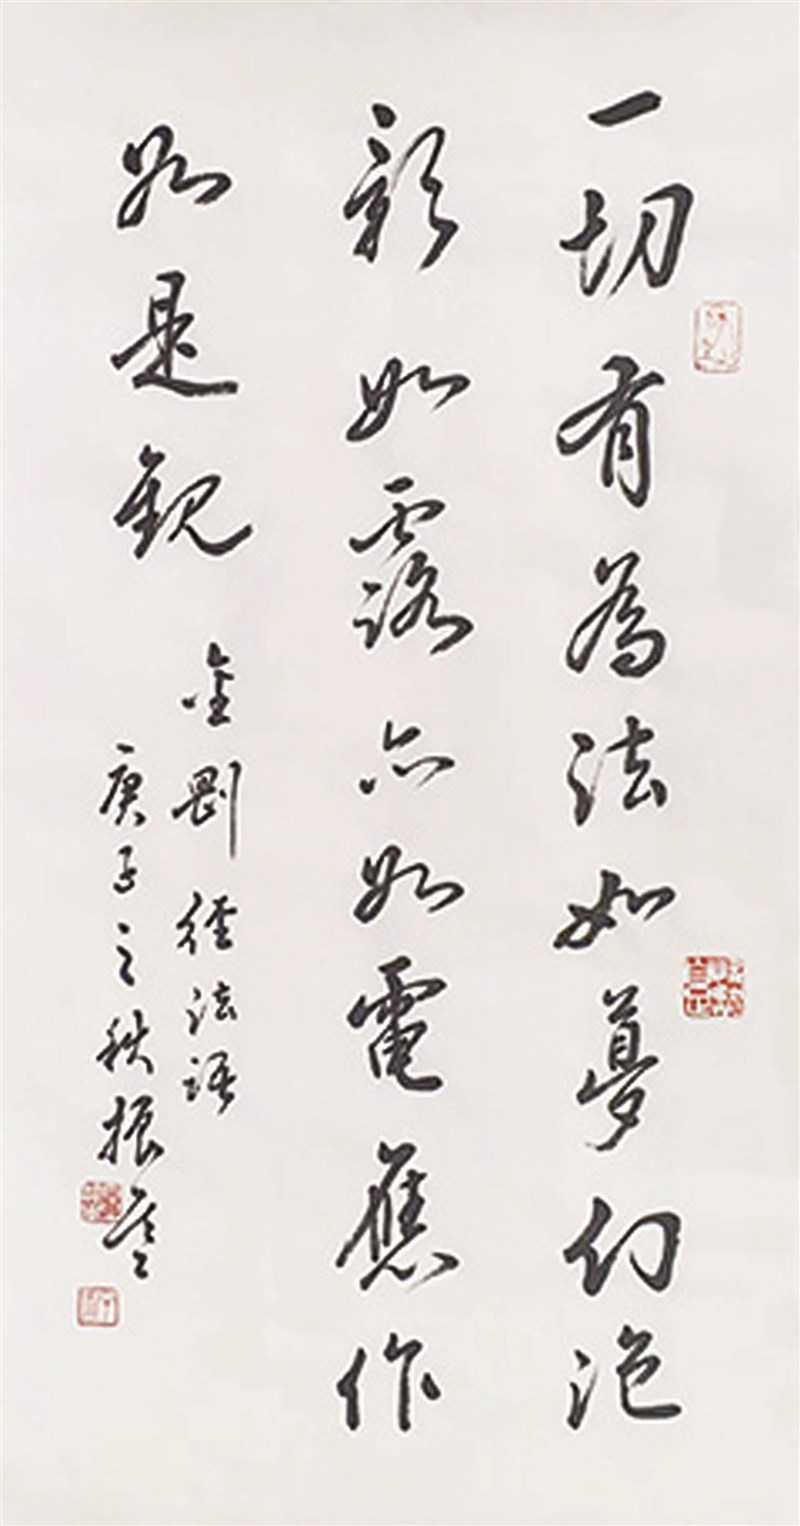 一切有為法如夢幻泡
影如露亦如電應作
如是觀
金剛經法語
庚子之秋振